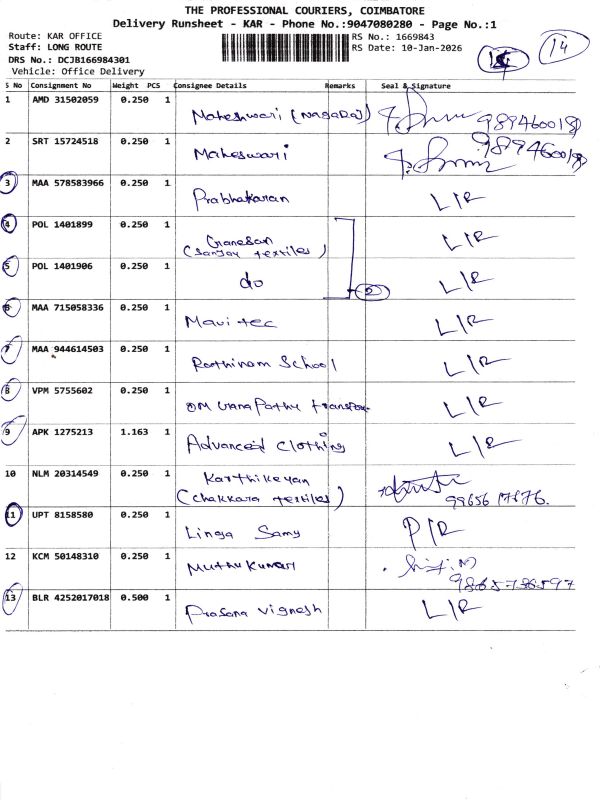 THE PROFESSIONAL COURIERS, COIMBATORE
Delivery Runsheet - KAR - Phone No.:9047080280 - Page No.:1
Route: KAR OFFICE
Staff: LONG ROUTE
DRS No.: DCJB166984301
Vehicle: Office Delivery
RS No.: 1669843
RS Date: 10-Jan-2026
14
S No Consignment No Weight PCS Consignee Details Remarks Seal & Signature
1 AMD 31502059 0.250 1 Maheshwari (Nagaraj) 9894600180
2 SRT 15724518 0.250 1 Maheswari 9894600180
3 MAA 578583966 0.250 1 Prabhakaran L/R
4 POL 1401899 0.250 1 Ganesan (Sanjay textiles) L/R
5 POL 1401906 0.250 1 do 2 L/R
6 MAA 715058336 0.250 1 Mavitec L/R
7 MAA 944614503 0.250 1 Rathinam School L/R
8 VPM 5755602 0.250 1 OM Ganapathy transport L/R
9 APK 1275213 1.163 1 Advanced Clothing L/R
10 NLM 20314549 0.250 1 Karthikeyan (Chakkara textiles) 99656 17676.
11 UPT 8158580 0.250 1 Linga Samy P/R
12 KCM 50148310 0.250 1 Muthu Kumari 9865738597
13 BLR 4252017018 0.500 1 Prasana Vignesh L/R